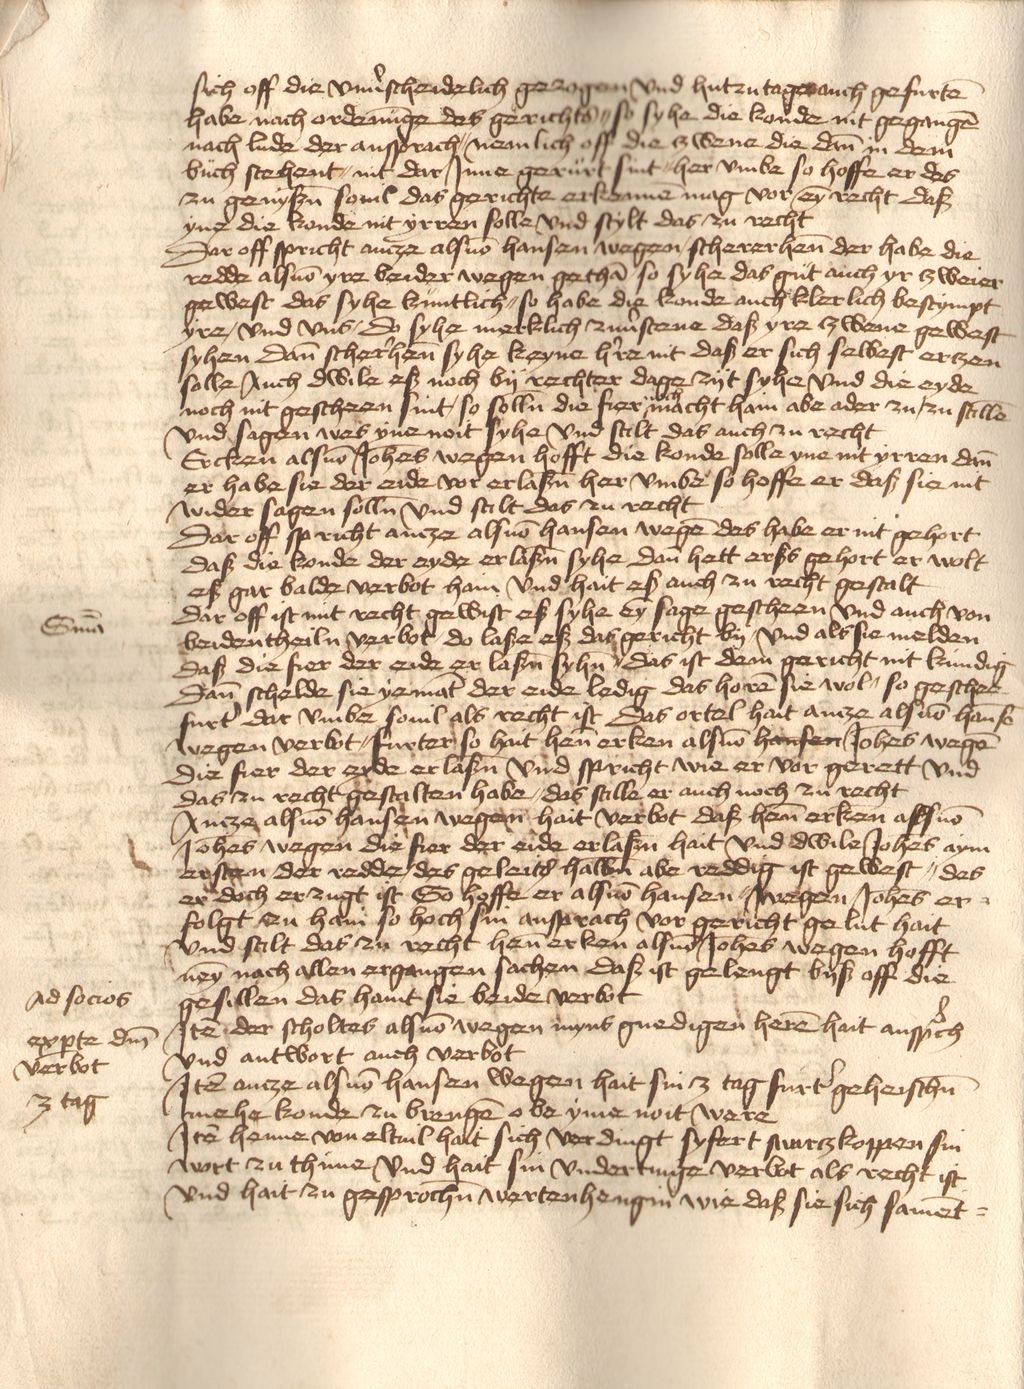 sich off die vnu͛scheidelich gezogen vnd hutzutage auch gefurte͞
habe nach ordenu͞ge des gerichts // so syhe die konde nit gegange͞
nach lude der ansprach / nemlich off die zwene die da͞n in dem
bůch stehent / nit dar Inne gerürt sint / her vmbe so hoffe er des
zu genyßn̄ souil das gerichte erkenne͞ mag vor ey͞ recht daß
yne die konde nit yrren solle vnd stylt das zu recht
Dar off spricht antze alsuo͞ hansen wegen scherrerhen͞ der habe die
redde alsuo͞ yre beider wegen getha͞ so syhe das gut auch yr zweier
gewest das syhe kůntlich // so habe die konde auch klerlich bestympt
yre / vnd vns / do syhe merklich zuu͛stene daß yre zwene gewest
syhen Dan͞ scher͛hen͞ syhe keyne h͛re nit daß er sich selbest ertzen
solle Auch dwile eß noch bij rechter dage zijt syhe vnd die eyde
noch nit gescheen sint / so solln̄ die fier macht hain abe ader zu / zu stille͞
vnd sagen wes yne noit syhe vnd stilt das auch zu recht
Ercken alsuo͞ Joh͞es wegen hofft die konde solle yne nit yrren dan͞
er habe sie der eide vor erlaßn̄ her vmbe so hoffe er daß sie nit
wider sagen solln̄ vnd stilt das zu recht
Dar off spricht antze alsuo͞ hansen wege͞ des habe er nit gehort
daß die konde der eyde erlaßn̄ syhe dan͞ hett erßs gehort er wolt
eß gar balde verbot hain vnd hait eß auch zu recht gestalt
Sn͞ia
Dar off ist mit recht gewist eß syhe ey͞ sage gescheen vnd auch von
beidentheiln̄ verbot / do laße eß das gericht bij / vnd als sie melden
daß die fier der eide erlaßn̄ syhn̄ / das ist dem gericht nit kundig
Dan͞ schelde sie yema͞t der eide ledig das hore͞ sie wol // so geschee
furt͛ dar vmbe souil als recht ist Das ortel hait antze alsuo͞ hanse͞
wegen verbot / furter so hait hen͞ erken alsuo͞ hansen Joh͞es wege͞
die fier der eyde erlaßn̄ vnd spricht wie er vor gerett vnd
das zu recht gestalten habe / das stille er auch noch zu recht
Antze alsuo͞ hansen wegen hait verbot daß hen͞ erken alsuo͞
Joh͞es wegen die fier der eide erlaßn̄ hait vnd dwile Joh͞es aym
ersten der redde des geleits halbn̄ abe reddig ist gewest // des
er doch erzugt ist So hoffe er alsuo͞ hansen wegen Joh͞es er =
folgt zu hain so hoch sin ansprach vor gericht gelut hait
vnd stilt das zu recht hen͞ erken alsuo͞ Joh͞es wegen hofft
ney͞ nach allen ergangen sachen daß ist gelengt byß off die
Ad socios
gesillen das haint sie beide verbot
exp͞te dm͞
verbot
Ite͞ der scholtes alsuo͞ wegen myns gnedigen here͞ hait ansp͛ch
vnd antwort auch verbot
3 tag
Ite͞ antze alsuo͞ hansen wegen hait sin 3 tag furt͛ geheischn̄
mehe konde zu brenge͞ obe yme noit were
Ite͞ henne von eltuil hait sich verdingt syfert swartzkoppen sin
wort zu thune vnd hait sin vndertinge verbot als recht ist
vnd hait zu gesprochn̄ wertenhengin wie daß sie sich same͞t =